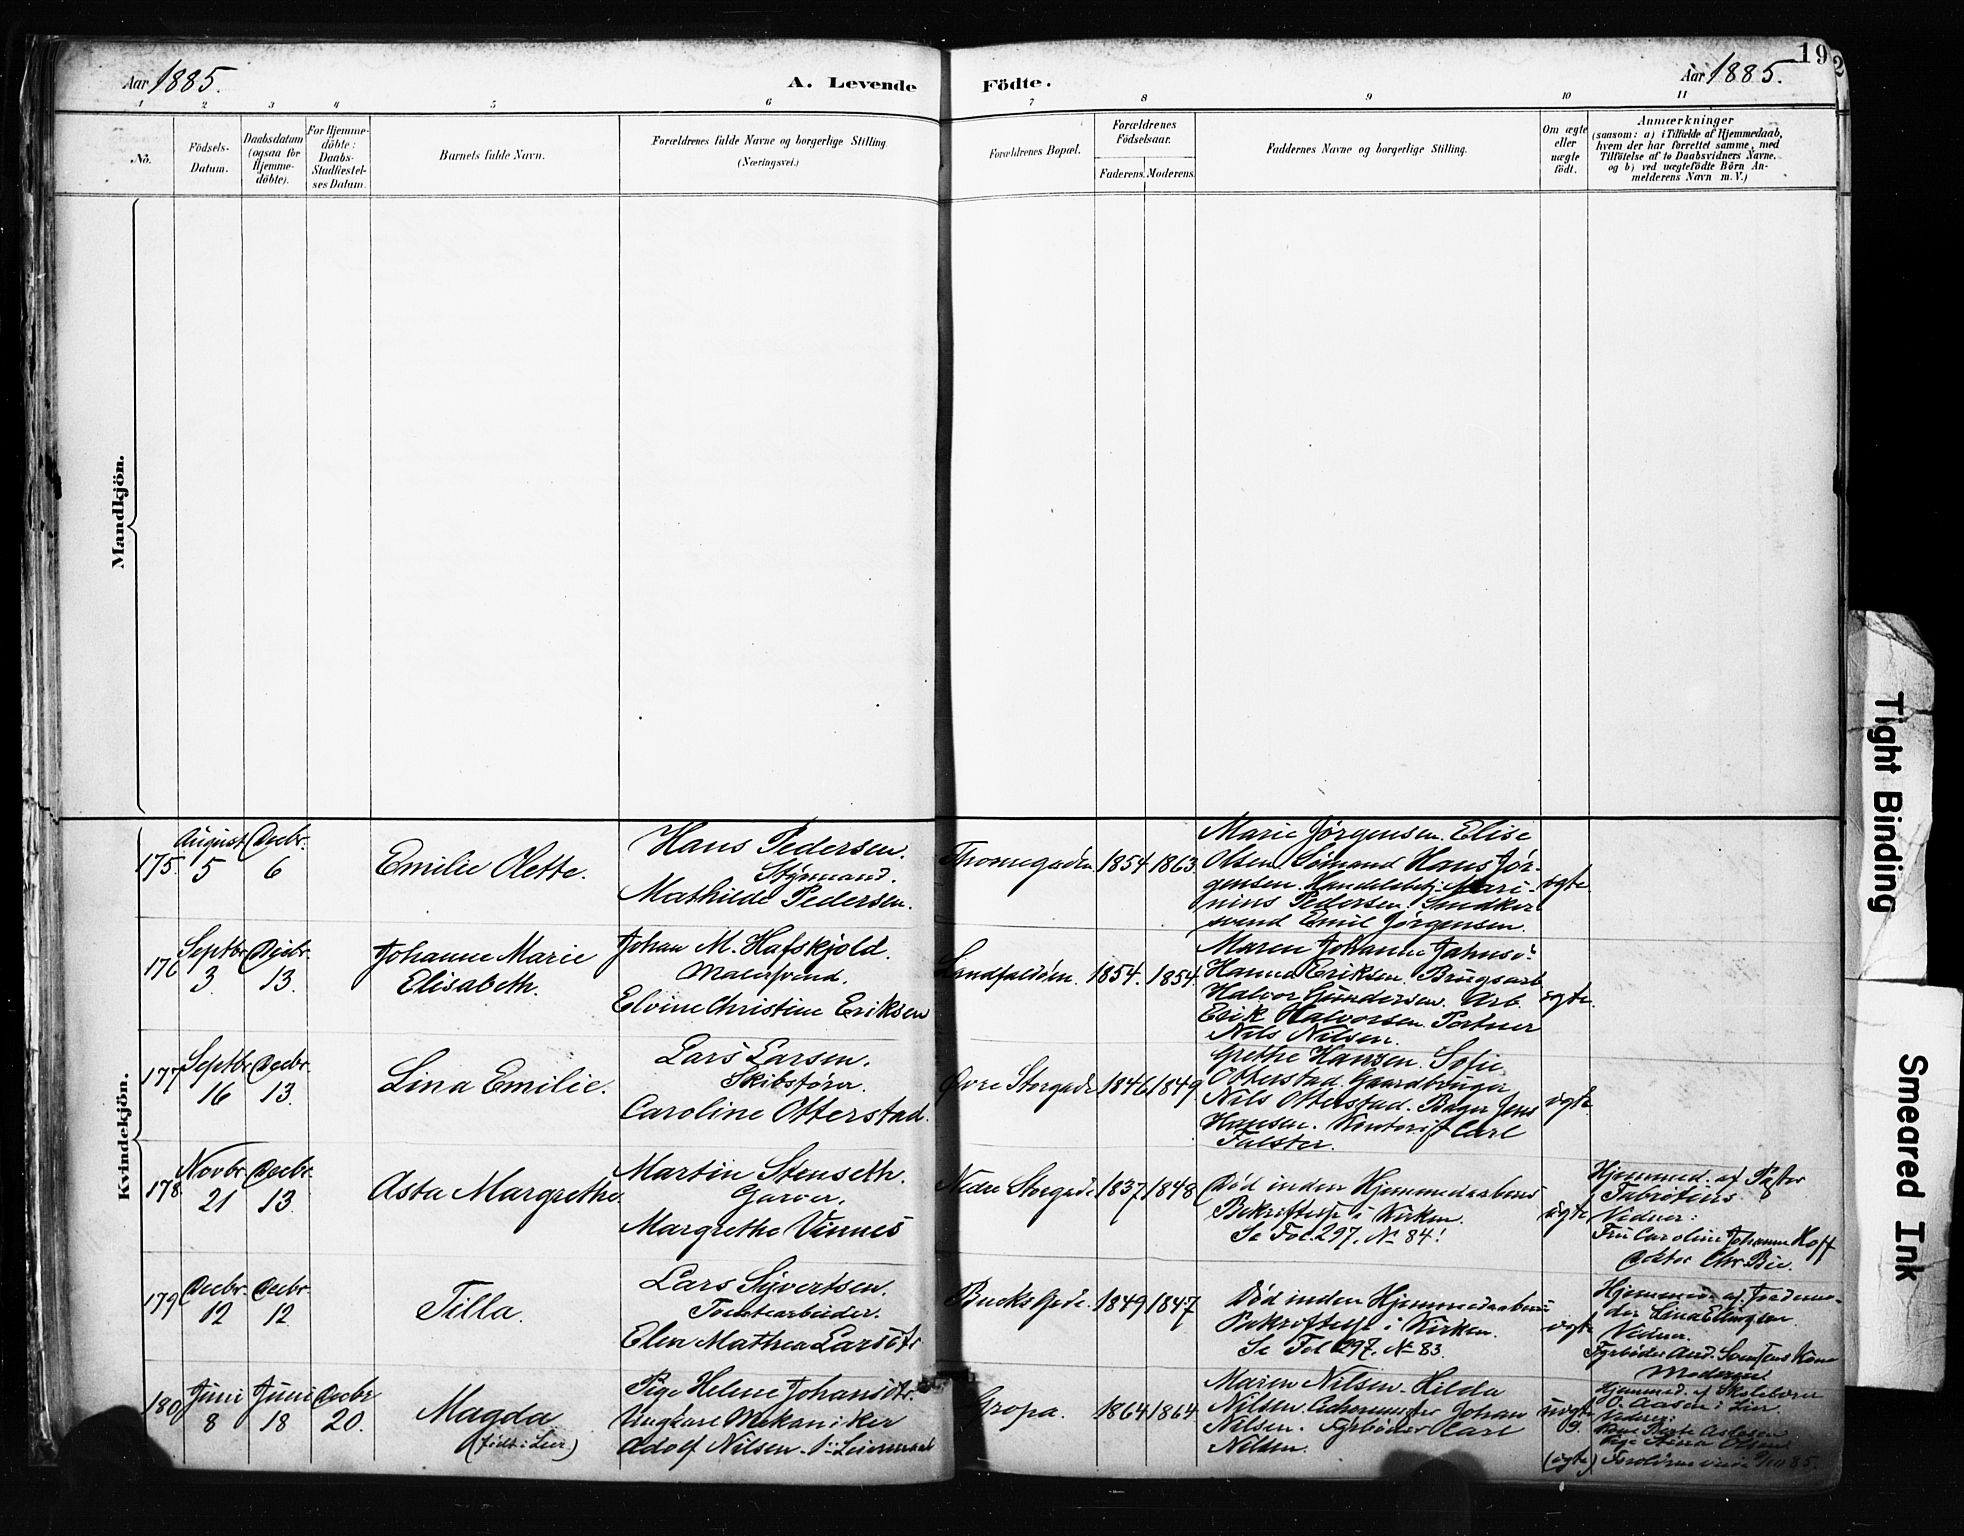 19
2
Aar 1885.
A. Levende
Födte.
Aar 1885.
1 2 3 4 5 6 7 8 9 10 11
No.
Födsels-
Datum.
Daabsdatum
(ogsaa for
Hjemme-
döbte).
For Hjemme-
döbte:
Daabs-
Stadfæstel-
ses Datum.
Barnets fulde Navn.
Forældrenes fulde Navne og borgerlige Stilling
(Næringsvei.)
Forældrenes Bopæl.
Forældrenes
Födselsaar.
Faderens. Moderens.
Faddernes Navne og borgerlige Stilling.
Om ægte
eller
uægte
födt.
Anmærkninger
(saasom: a) i Tilfælde af Hjemmedaab,
hvem der har forrettet samme, med
Tilföielse af to Daabsvidners Navne,
og b) ved uægtefödte Börn An-
melderens Navn m. V.)
Mandkjön.
Kvindekjön.
175.
August
5
Decbr.
6
Emilie Olette.
Hans Pedersen.
Styrmand.
Mathilde Pedersen.
Thornegaden
1854.
1863.
Marie Jørgensen. Elise
Olsen. Sømand Hans Jør-
gensen. Handelsbetj. Mari-
nius Pedersen. Smedker
svend Emil Jørgensen.
ægte
176
Septbr
3.
Decbr.
13.
Johanne Marie
Elisabeth.
Johan M. Hafskjold.
Malersvend.
Elvine Christine Eriksen
Landfaldøen.
1854.
1854.
Maren Johanne
Hanna Eriksen. Brugsarb
Halvor Gundersen. Arb.
Erik Halvorsen. Portner
Nils Nilsen.
ægte.
177
Septbr
16
Decbr.
13.
Lina Emilie.
Lars Larsen.
Skibsfører.
Caroline Otterstad.
Øvre Storgade
1846
1849.
Grethe Hansen. Sofie
Otterstad. Gaardbruger
Nils Otterstad. Bager Jens
Hansen. Kontorist Carl
Falster.
ægte
178
Novbr
21
Decbr.
13.
Asta Margrethe
Martin Stenseth.
Garver.
Margrethe Vinnes
Nedre Storgade
1837
1848
Død inden Hjemmedaabens
Bekræftelse i Kirken.
Se Fol. 297. No 84!
ægte
Hjemmed. af Pastor
Fabritius
Vidner:
Fru Caroline Johanne Hoff
Doktor Chr. Bie.
179
Decbr.
12
Decbr.
12
Tilla.
Lars Syvertsen.
Tomtearbeider.
Elen Mathea Larsdtr
Bucks Gade.
1849
1847
Død inden Hjemmedaabens
Bekræftelse i Kirken.
Se Fol. 297. No 83.
ægte
Hjemmed. af Jordemo-
der Lina Ellingsen.
Vidner.
Moderen
180
Juni
8
Juni
18
Decbr
20.
Magda
(født i Lier)
Pige Helene Johansdtr.
Ungkarl Mekaniker
Adolf Nilsen. 1ste Leiermaal
Gropa.
1864
1864
Maren Nilsen. Hilda
Nilsen. Johan
Nilsen. Fyrbøder Carl
Nilsen.
uægte
(ægte)
Hjemmed. af Skolelærer
O. Aasen i Lier.
Vidner:
Pige Stina Olsen
Tight Binding
Smeared Ink